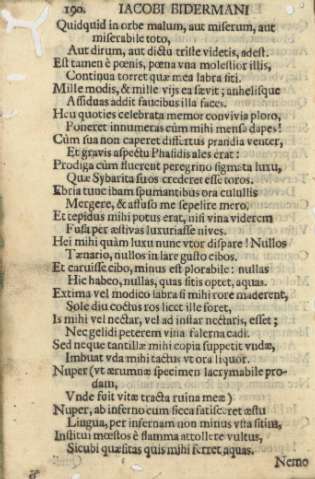 190. IACOBI BIDERMANI
Quidquid in orbe malum, aut miserum, aut
miserabile toto,
Aut dirum, aut dictu triste videtis, adest.
Est tamen è pœnis, pœna vna molestior illis,
Continua torret quæ mea labra siti.
Mille modis, & mille vijs ea sævit; anhelisque
Assiduas addit faucibus illa faces.
Heu quoties celebrata memor convivia ploro,
Poneret innumeras cùm mihi mensa dapes!
Cùm sua non caperet differtus prandia venter,
Et gravis aspectu Phasidis ales erat:
Prodiga cùm fluerent peregrino sigmata luxu,
Quæ Sybarita suos crederet esse toros.
Ebria tunc ibam spumantibus ora culullis
Mergere, & affuso me sepelire mero,
Et tepidus mihi potus erat, nisi vina viderem
Fusa per æstivas luxuriasse nives.
Hei mihi quàm luxu nunc vtor dispare! Nullos
Tænario, nullos in lare gusto cibos.
Et caruisse cibo, minus est plorabile: nullas
Hic habeo, nullas, quas sitis optet, aquas.
Extima vel modico labra si mihi rore maderent,
Sole diu coctus ros licet ille foret,
Is mihi vel nectar, vel ad instar nectaris, esset;
Nec gelidi peterem vina falerna cadi.
Sed neque tantillæ mihi copia suppetit vndæ,
Imbuat vda mihi tactus vt ora liquor.
Nuper (vt ærumnæ specimen lacrymabile pro-
dam,
Vnde fuit vitæ tracta ruina meæ)
Nuper, ab inferno cum sicca fatisceret æstu
Lingua, per infernam non minus vsta sitim,
Institui mœstos è flamma attollere vultus,
Sicubi quæsitas quis mihi ferret aquas.
Nemo